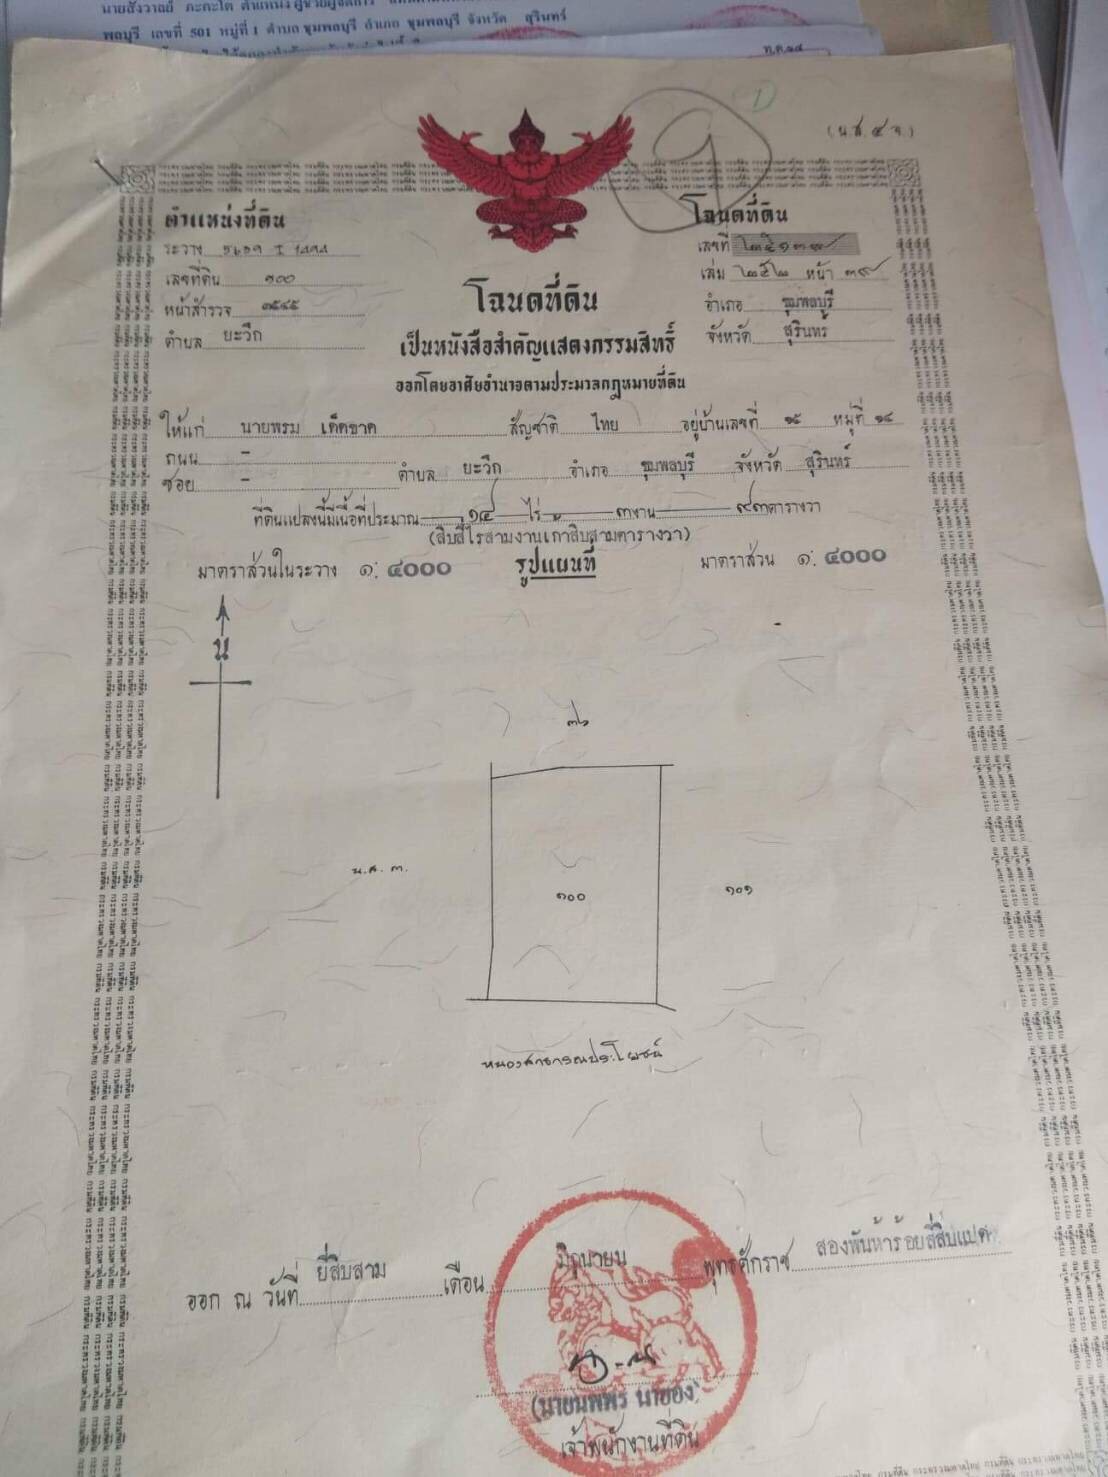 พลบุรี เลขที่ 501 หมู่ที่ 1 ตำบล ชุมพลบุรี อำเภอ ชุมพลบุรี จังหวัด สุรินทร์
(น.ส. ๔ จ.)
ตำแหน่งที่ดิน
โฉนดที่ดิน
ระวาง
เลขที่ดิน ๑๐๐
หน้าสำรวจ ๓๕๔๕
ตำบล ยะวึก
เลขที่ ๒๕๑๓๙
เล่ม ๒๕๒ หน้า ๓๙
อำเภอ ชุมพลบุรี
จังหวัด สุรินทร์
โฉนดที่ดิน
เป็นหนังสือสำคัญแสดงกรรมสิทธิ์
ออกโดยอาศัยอำนาจตามประมวลกฎหมายที่ดิน
ให้แก่ นายพรม เด็ดขาด สัญชาติ ไทย อยู่บ้านเลขที่ ๑๕ หมู่ที่ ๑๔
ถนน -
ซอย - ตำบล ยะวึก อำเภอ ชุมพลบุรี จังหวัด สุรินทร์
ที่ดินแปลงนี้มีเนื้อที่ประมาณ ๑๔ ไร่ ๓ งาน ๙๓ ตารางวา
(สิบสี่ไร่สามงานเก้าสิบสามตารางวา)
มาตราส่วนในระวาง ๑: ๔๐๐๐ รูปแผนที่ มาตราส่วน ๑: ๔๐๐๐
น
๓๖
น.ส. ๓.
๑๐๐
๑๐๑
หนองสาธารณประโยชน์
ออก ณ วันที่ ยี่สิบสาม เดือน มิถุนายน พุทธศักราช สองพันห้าร้อยสี่สิบแปด
(นายนพพร นายอง)
เจ้าพนักงานที่ดิน